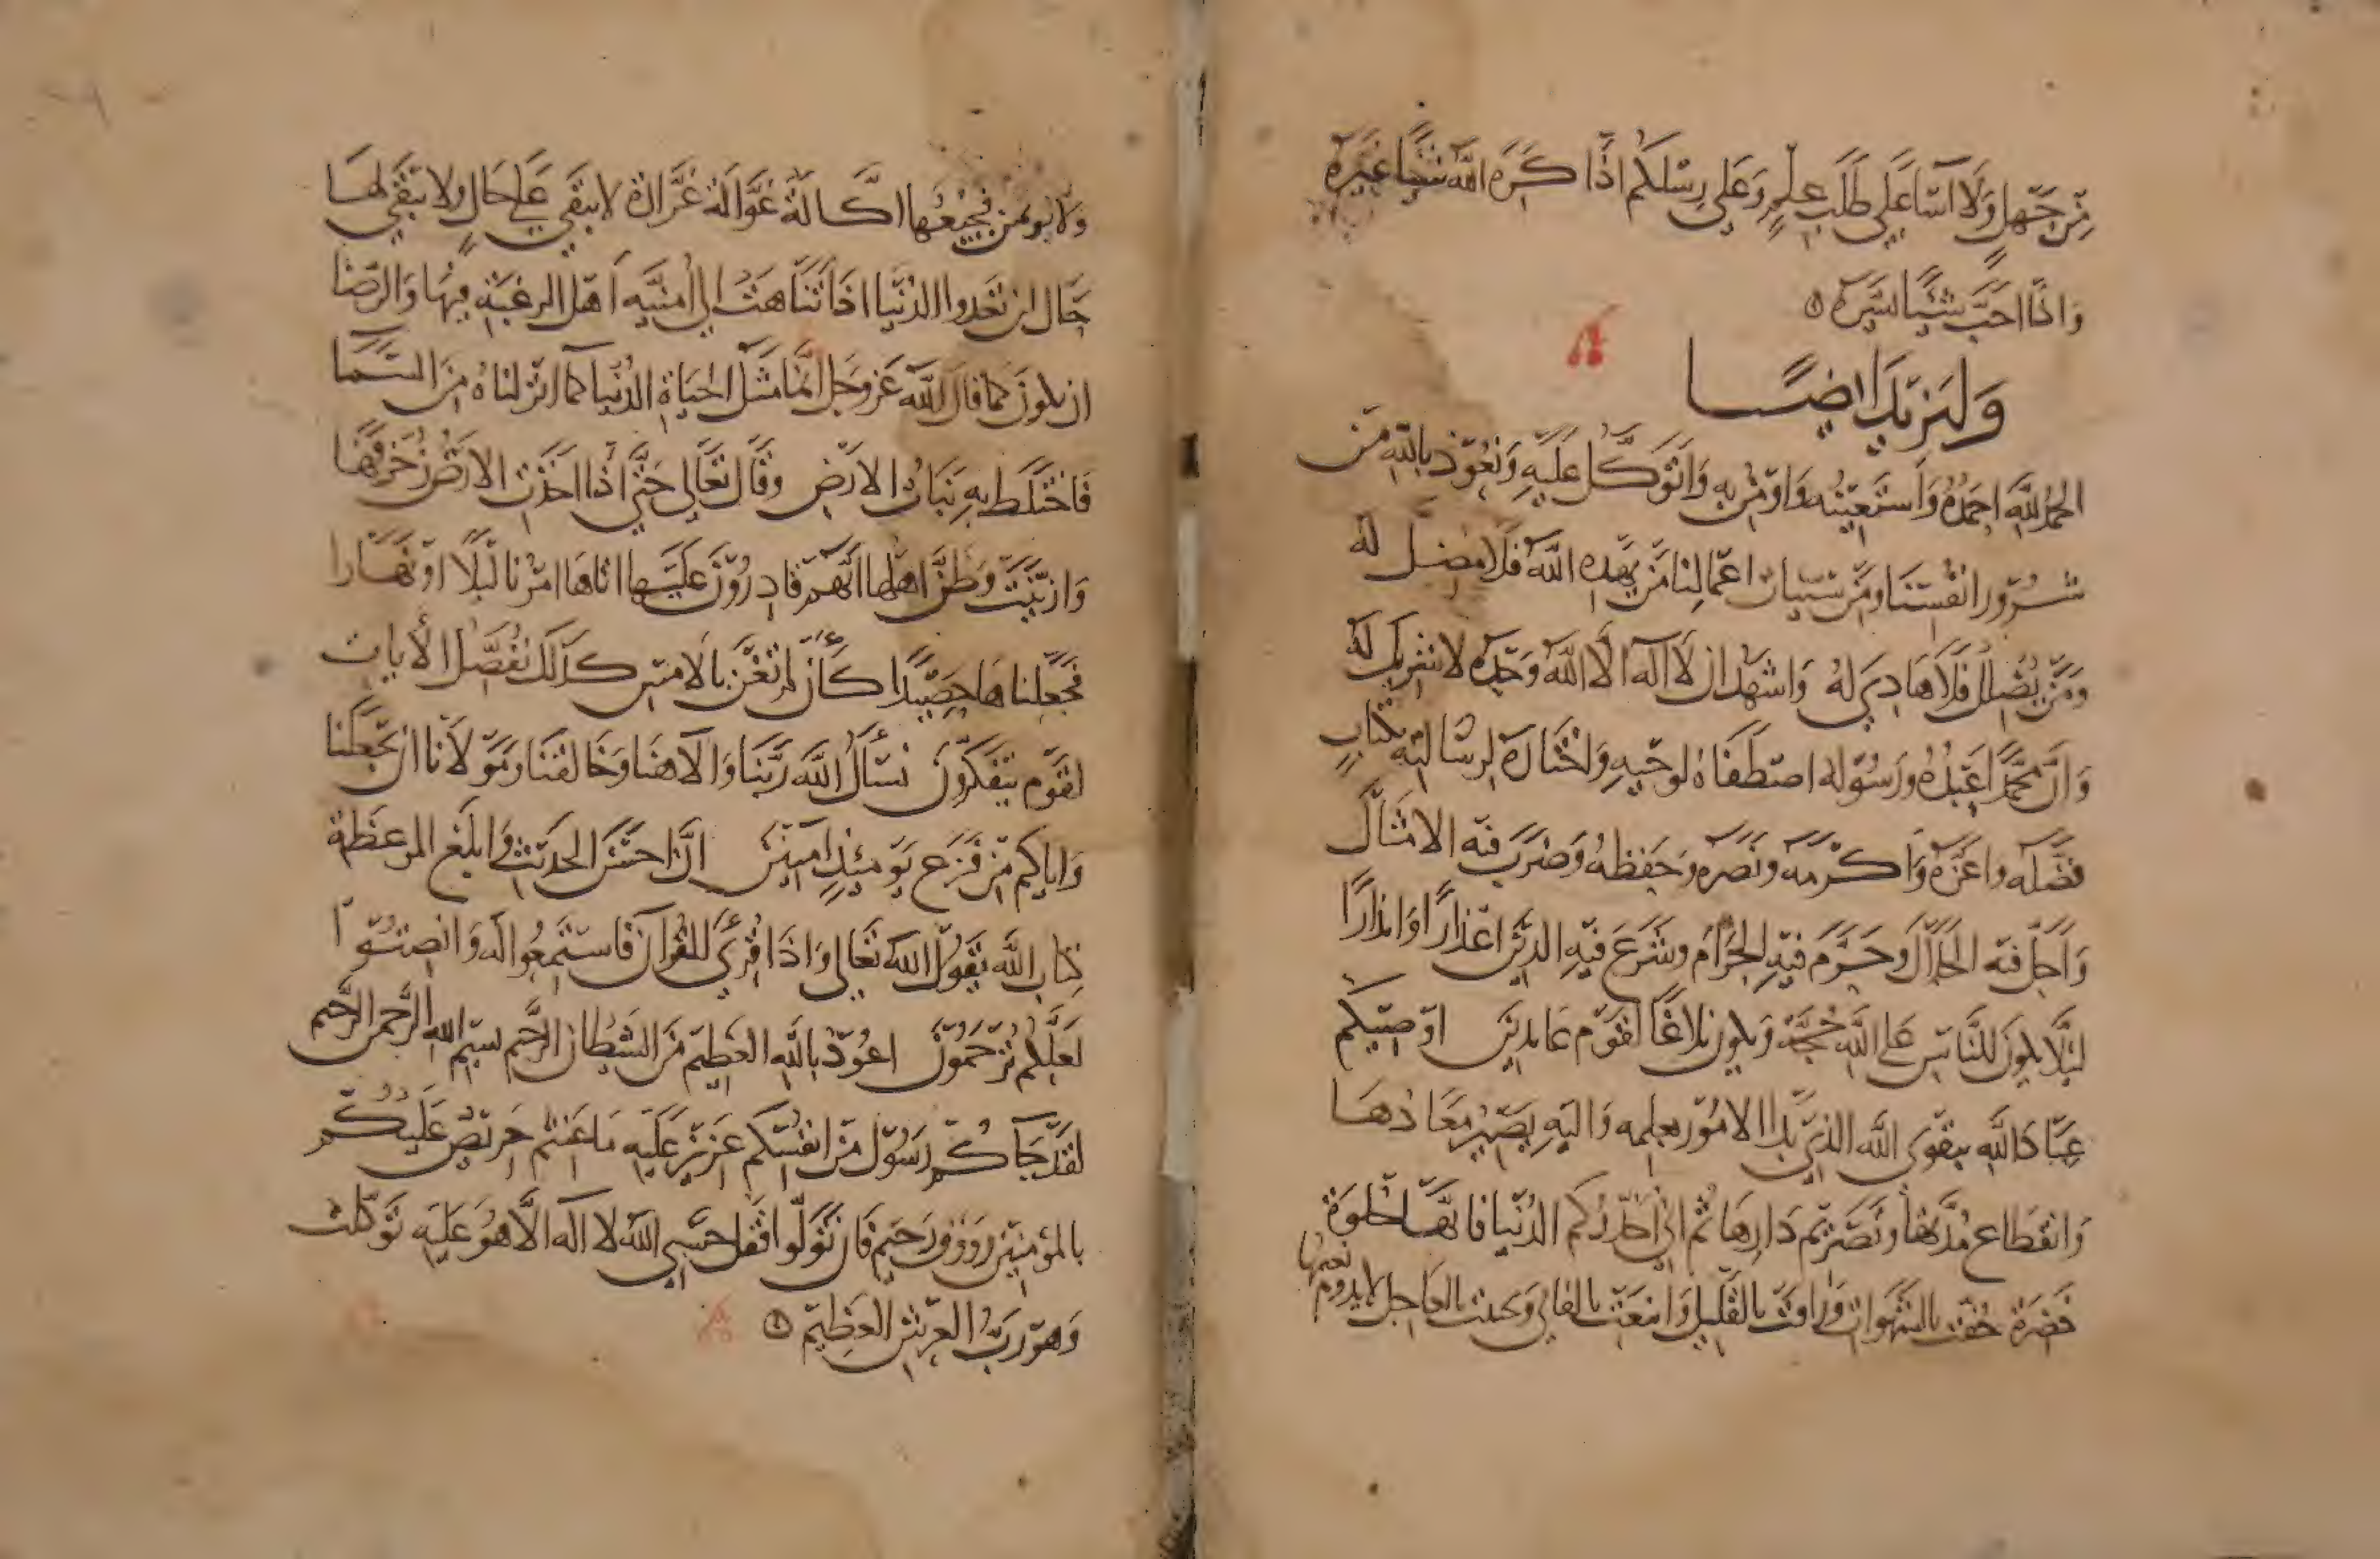 مِن جَهلٍ وَلَا اَسَا عَلَى طَلَبِ عِلمٍ وَعَلَى رِسلكُم اذَا كَرِهَ اللَّه شيًا غَيَّرَه
وَاذَا احَبَّ شيًا يسّره
وَلَهُ يزيد ايضًا
الحمدُ لِلَّهِ احمَدُهُ وَاستَعِينُه وَاومِن بِهِ وَاتَوَكَّل عَلَيهِ وَنَعُوذ بِاللَّهِ مِن
شُرُور انفُسنَا وَمِن سَيّات اعمَالِنَا مَن يَهدِهِ اللَّهُ فَلَا مضِلَّ لَهُ
وَمَن يُضلِل فَلَا هَادِيَ لهُ وَاشهَد ان لَا اله الا اللَّهُ وَحدَهُ لا شَرِيكَ لهُ
وَانَّ محمَّدًا عَبدُهُ ورَسُوله اصطَفَاهُ لوَحيِهِ وَاختَارَهُ لِرسَالتِهِ بكتَابٍ
فَضَّلَه واعَزَّه وَاكرَمَه ونَصَرَه وحَفِظَهُ وَضَرَبَ فيه الامثَال
وَاحلَّ فيه الحَلَالَ وَحَرَّمَ فِيهِ الحَرَامَ وشَرَعَ فِيهِ الدين اعذارًا وَانذارًا
لئلا يكونَ للنَّاسِ عَلى اللَّه حُجَّة وَيكون بَلَاغًا لقَوم عَابدِين اوصِيكم
عِبَادَ اللَّهِ بِتَقوَى اللَّه الذي بَدا الامُور بعِلمِه وَاليهِ يَصِيرُ مَعَادُهَا
وَانقطَاع مُدَّتِهَا وتَصَرُّم دَارِهَا ثم اني احَذّرُكم الدُنيَا فانهَا حُلوَة
خَضِرَة حُفَّت بالشَهَوات وَرَاقت بالقَلِيل وَاينَعَت بالفاني وَتحلت بالعاجل لا يدوم نعيمها
وَلَا يومن فجيعُها اكَّالَة غَوَّالَة غَرَّارَة لا تبقَى عَلى حَالٍ ولا يَبقَى لهَا
حَال لن تعدوا الدنيَا اذَا تَنَاهَت الى امنيَّه اَهل الرغبَة فِيهَا وَالرِضَا
ان يكونَ كما قالَ اللَّه عَز وجَل انما مَثَل الحَيَاة الدُنيَا كما انزلنَاهُ مِنَ السَمَا
فَاختَلَط بِهِ نَبَاتُ الارضِ وقَال تعَالى حَتى اذا اخَذَت الارضُ زُخرفَهَا
وَازينَت وَظَنَّ اهلهَا انَّهم قَادِرُونَ عَلَيها اتَاهَا امرُنَا لَيلًا اوْ نَهَارا
فجَعَلنَاهَا حَصِيدًا كَأَن لم تَغنَ بالامسِ كذَلكَ نُفَصّل الايات
لقَوم يتفكرون نسأل اللَّه ربَّنَا وَالاهنَا وَخَالقَنَا وَمَولَانَا ان يجعَلنَا
وَاياكم من فَزَع يَومئذٍ امِنِين انَّ احسَنَ الحَديث وَابلَغ الموعظة
كتاب اللَّه يَقول اللَّه تعَالى وَاذَا قُرئَ القُرآن فَاستَمِعُوا لَه وَانصتُوا
لعَلَّكم تُرحَمُون اعُوذ بِاللَّهِ العَظِيم منَ الشيطان الرَّجِيم بِسم اللَّه الرَّحمن الرَّحيم
لقَد جَاكُم رَسُول من انفُسكم عَزِيز عَلَيه مَا عَنتم حَرِيصٌ عَلَيكُم
بالمُؤمنِين رؤف رَحِيم فَان تَوَلَّوا فَقل حَسبيَ اللَّه لا اله الَّا هُوَ عَلَيه تَوَكلت
وَهوَ رَبُّ العَرشِ العَظِيم